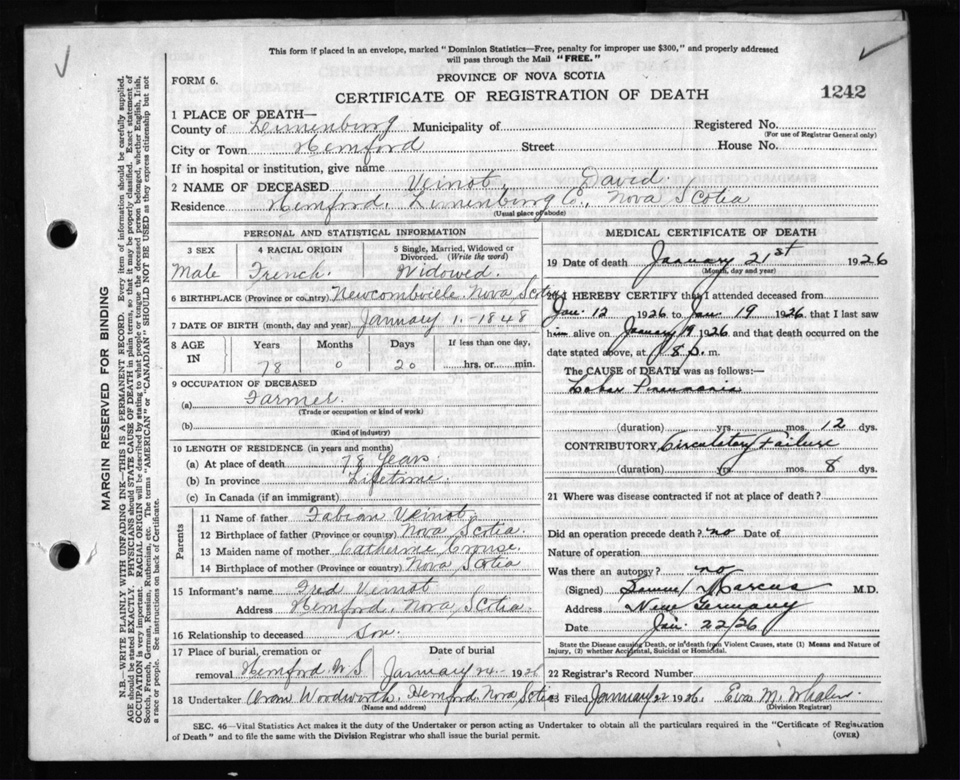 This form if placed in an envelope, marked "Dominion Statistics—Free, penalty for improper use $300," and properly addressed
will pass through the Mail "FREE."
FORM 6.
PROVINCE OF NOVA SCOTIA
CERTIFICATE OF REGISTRATION OF DEATH
1242
MARGIN RESERVED FOR BINDING
N.B.—WRITE PLAINLY WITH UNFADING INK—THIS IS A PERMANENT RECORD. Every item of information should be carefully supplied.
AGE should be stated EXACTLY. PHYSICIANS should STATE CAUSE OF DEATH in plain terms, so that it may be properly classified. Exact statement of
OCCUPATION is very important. RACIAL ORIGIN will be described by stating to what people or tongue the deceased person belonged, whether English, Irish,
Scotch, French, German, Russian, Ruthenian, etc. The terms "AMERICAN" or "CANADIAN" SHOULD NOT BE USED as they express citizenship but not
a race or people. See instructions on back of Certificate.
1 PLACE OF DEATH—
County of Lunenburg Municipality of Registered No.
(For use of Registrar General only)
City or Town Hemford Street House No.
If in hospital or institution, give name
2 NAME OF DECEASED Veinot, David.
Residence Hemford, Lunenburg Co., Nova Scotia
(Usual place of abode)
PERSONAL AND STATISTICAL INFORMATION
3 SEX 4 RACIAL ORIGIN 5 Single, Married, Widowed or
Divorced. (Write the word)
Male French. Widowed.
6 BIRTHPLACE (Province or country) Newcombville. Nova Scotia
7 DATE OF BIRTH (month, day and year) January 1. - 1848
8 AGE IN Years Months Days If less than one day,
78 0 20 hrs. or min.
9 OCCUPATION OF DECEASED
(a) Farmer.
(Trade or occupation or kind of work)
(b)
(Kind of industry)
10 LENGTH OF RESIDENCE (in years and months)
(a) At place of death 78 Years
(b) In province Lifetime.
(c) In Canada (if an immigrant)
Parents
11 Name of father Fabian Veinot,
12 Birthplace of father (Province or country) Nova Scotia.
13 Maiden name of mother Catherine Crouse.
14 Birthplace of mother (Province or country) Nova Scotia
15 Informant's name Fred Veinot
Address Hemford, Nova Scotia.
16 Relationship to deceased Son.
17 Place of burial, cremation or Date of burial
removal Hemford N.S January 24- 1926
18 Undertaker Woodworth. Hemford Nova Scotia
(Name and address)
MEDICAL CERTIFICATE OF DEATH
19 Date of death January 21st 1926
(Month, day and year)
20 I HEREBY CERTIFY that I attended deceased from
Jan. 12 1926 to Jan. 19 1926, that I last saw
him alive on January 19 1926 and that death occurred on
date stated above, at 8 P. m.
The CAUSE of DEATH was as follows:—
Lobar Pneumonia
(duration) yrs. mos. 12 dys.
CONTRIBUTORY Circulatory Failure
(duration) yrs. mos. 8 dys.
21 Where was disease contracted if not at place of death?
Did an operation precede death? no Date of
Nature of operation
Was there an autopsy? no
(Signed) Samuel Marcus M.D.
Address New Germany
Date Jan. 22/26
State the Disease causing Death, or in death from Violent Causes, state (1) Means and Nature of
Injury, (2) whether Accidental, Suicidal or Homicidal.
22 Registrar's Record Number
23 Filed January 1926. M. Whalen
(Division Registrar)
SEC. 46—Vital Statistics Act makes it the duty of the Undertaker or person acting as Undertaker to obtain all the particulars required in the "Certificate of Registration
of Death" and to file the same with the Division Registrar who shall issue the burial permit.
(OVER)